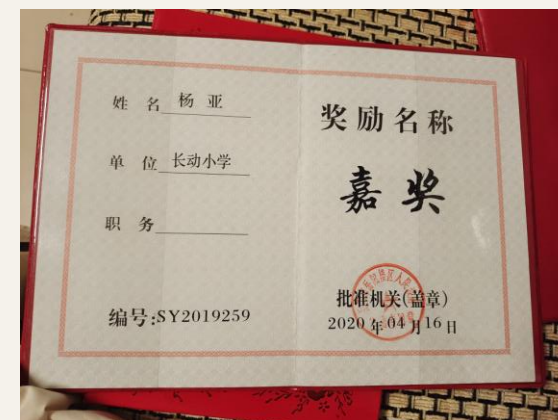 姓 名 杨 亚
单 位 长动小学
职 务
编号:SY2019259
奖励名称
嘉奖
批准机关(盖章)
2020 年 04 月 16 日